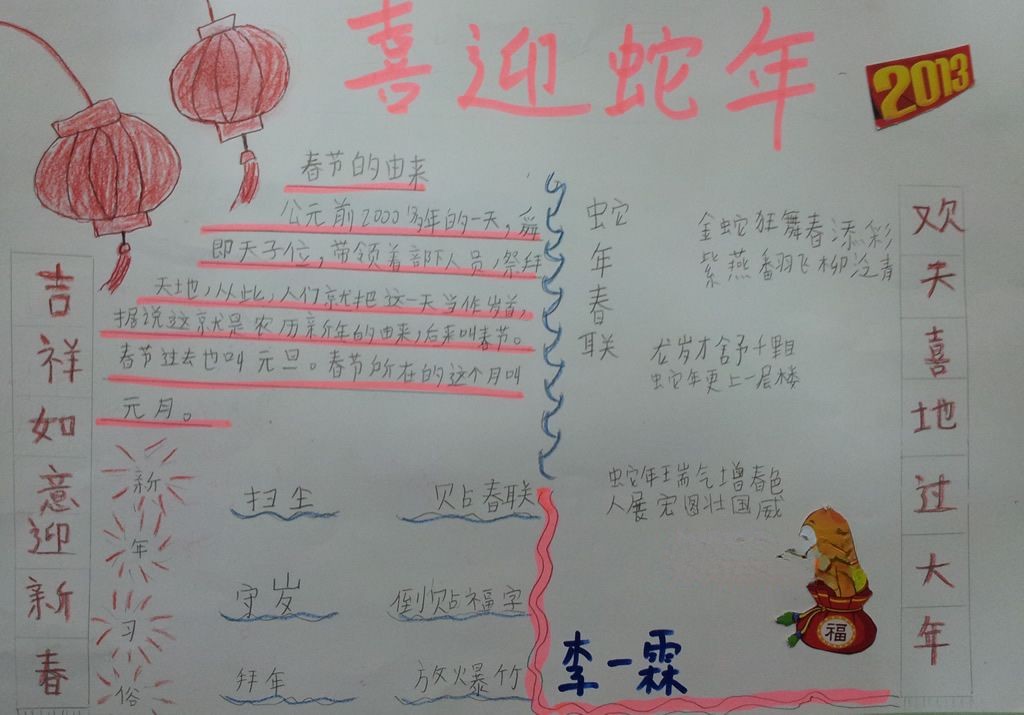 喜迎蛇年
2013
春节的由来
公元前2000多年的一天,舜
即天子位,带领着部下人员,祭拜
天地,从此,人们就把这一天当作岁首,
据说这就是农历新年的由来,后来叫春节。
春节过去也叫元旦。春节所在的这个月叫
元月。
吉祥如意迎新春
新年习俗
扫尘
贴春联
守岁
倒贴福字
拜年
放爆竹
蛇年春联
金蛇狂舞春添彩
紫燕翻飞柳泛青
蛇年更上一层楼
蛇年瑞气增春色
人展宏图壮国威
福
李一霖
欢天喜地过大年